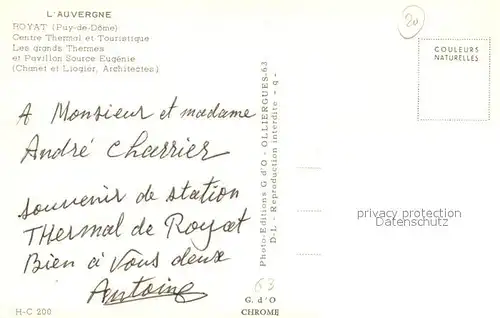 L'AUVERGNE
ROYAT (Puy-de-Dôme)
Centre Thermal et Touristique
Les grands Thermes
et Pavillon Source Eugénie
(Chimet et Liogier, Architectes)
20
COULEURS
NATURELLES
A Monsieur et madame
André Charrier
souvenir de station
THermal de Royat
Bien à Vous deux
Antoine
Photo-Editions G d'O - OLLIERGUES-63
D-L - Reproduction interdite - 9 -
privacy protection
Datenschutz
63
H-C 200
G. d'O
CHROME